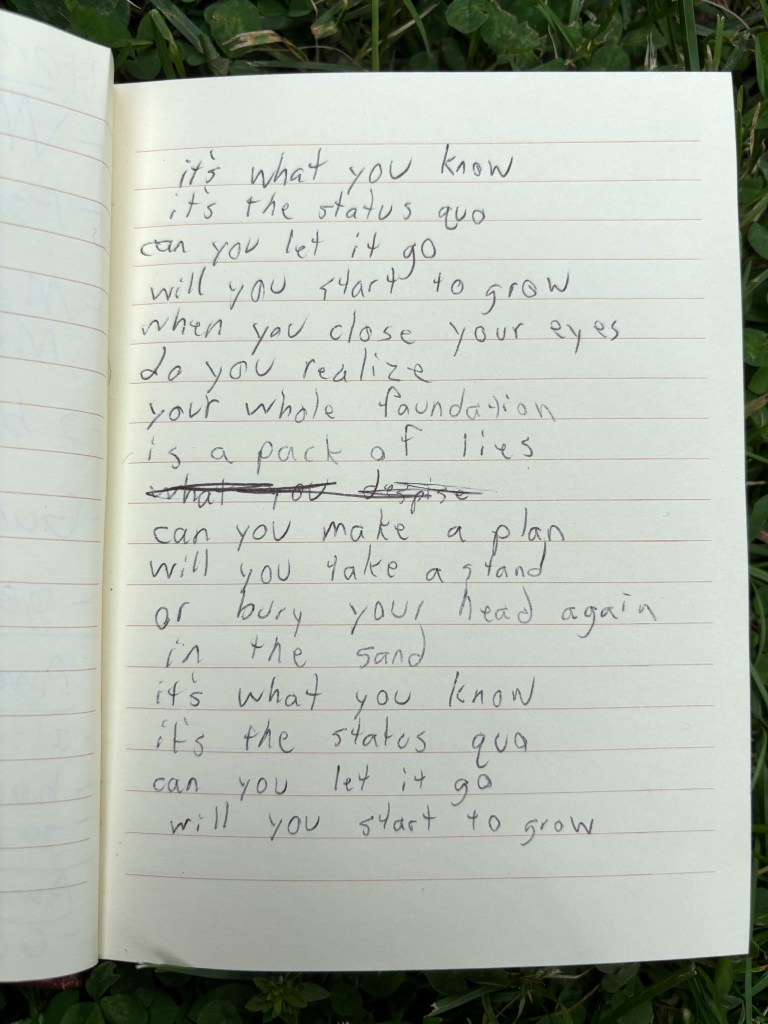 it's what you know
it's the status quo
can you let it go
will you start to grow
when you close your eyes
do you realize
your whole foundation
is a pack of lies
what you despise
can you make a plan
will you take a stand
or bury your head again
in the sand
it's what you know
it's the status quo
can you let it go
will you start to grow